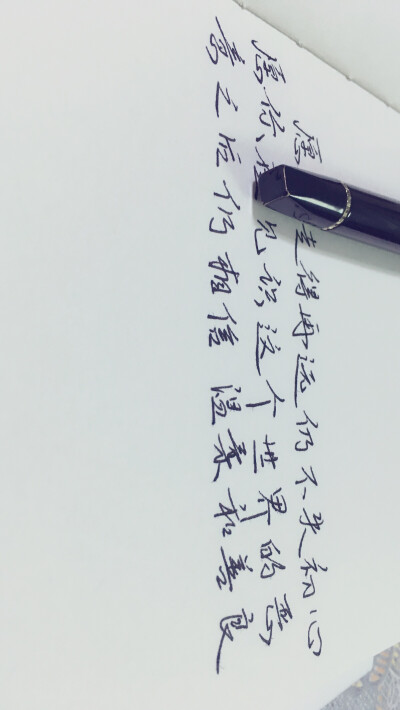 愿走得再远仍不失初心
愿你见识这个世界的恶
意之后仍相信温柔和善良